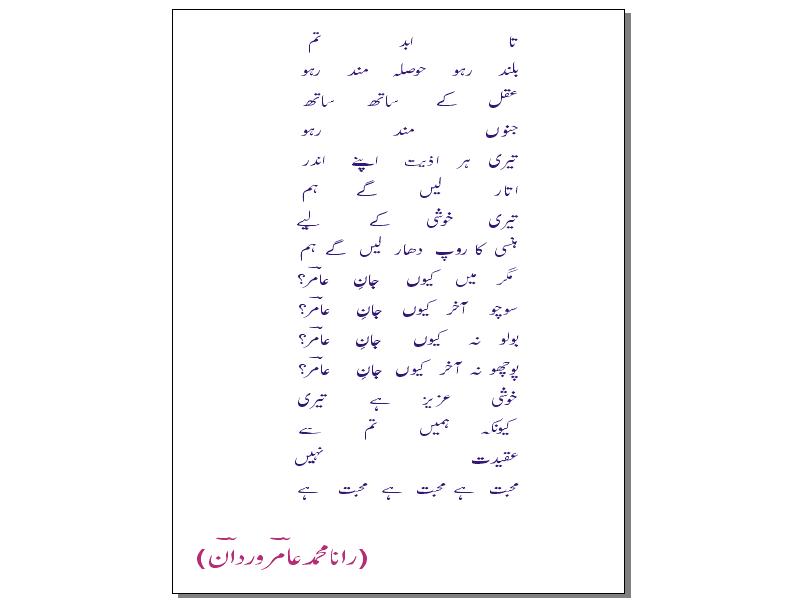 تا ابد تم
بلند رہو حوصلہ مند رہو
عقل کے ساتھ ساتھ
جنوں مند رہو
تیری ہر اذیت اپنے اندر
اتار لیں گے ہم
تیری خوشی کے لیے
ہنسی کا روپ دھار لیں گے ہم
مگر میں کیوں جانِ عامرؔ؟
سوچو آخر کیوں جانِ عامرؔ؟
بولو نہ کیوں جانِ عامرؔ؟
پوچھو نہ آخر کیوں جانِ عامرؔ؟
خوشی عزیز ہے تیری
کیونکہ ہمیں تم سے
عقیدت نہیں
محبت ہے محبت ہے محبت ہے
(رانا محمد عامرؔ وردانؔ)